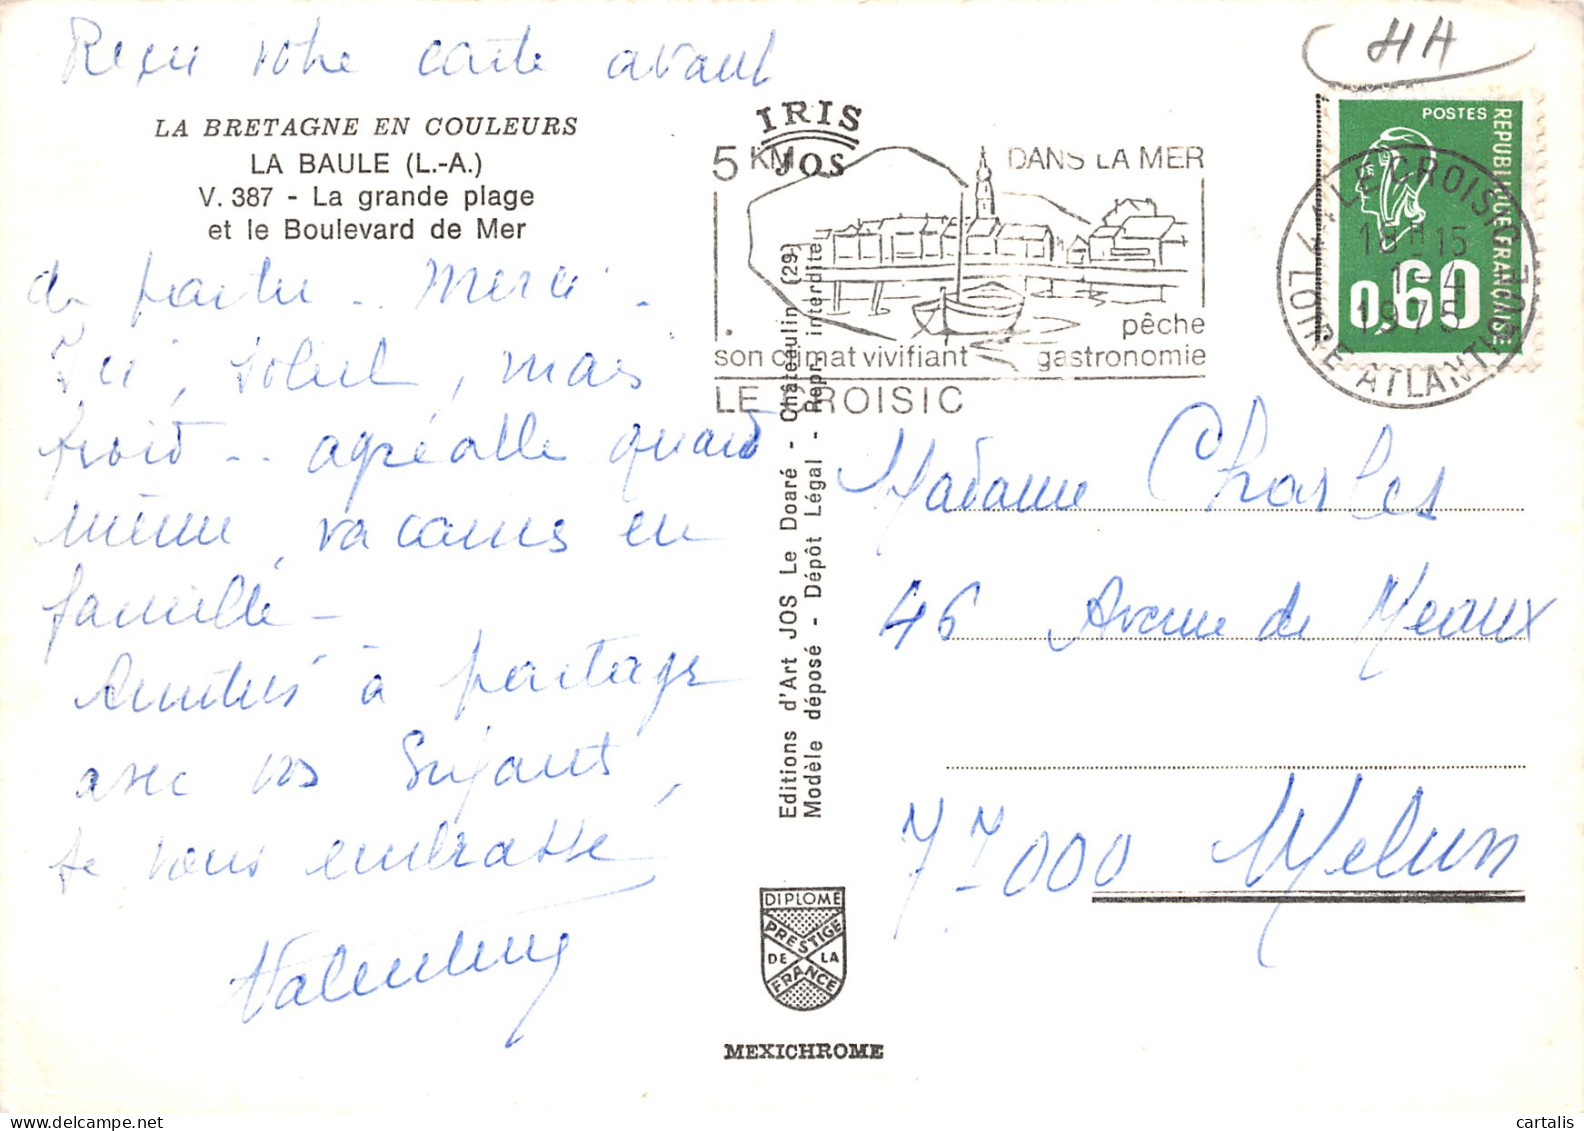 Reçu votre carte avant
LA BRETAGNE EN COULEURS
LA BAULE (L.-A.)
V. 387 - La grande plage
et le Boulevard de Mer
de partir.. Merci.
Ici, soleil, mais
froid... agréable quand
même, vacances en
famille -
Amitiés à partager
avec vos Enfants,
Je vous embrasse
IRIS
JOS
5 KM DANS LA MER
pêche
son climat vivifiant gastronomie
LE CROISIC
Editions d'Art JOS Le Doaré - Châteaulin (29)
Modèle déposé - Dépôt Légal - Repr. interdite
DIPLOME
PRESTIGE
DE LA
FRANCE
MEXICHROME
HH
POSTES
REPUBLIQUE FRANÇAISE
0,60
44 LE CROISIC
18 H 15
1-4
1975
LOIRE ATLANTIQUE
Madame Charles
46 Avenue de Meaux
77000 Melun
cartalis